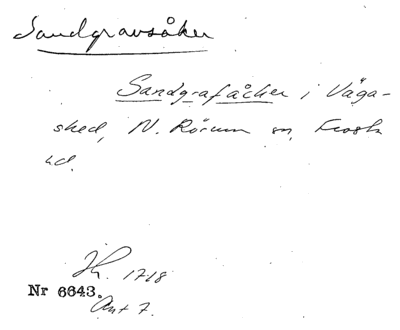 Sandgravsåker
Sandgrafåcker i Väga-
shed, N. Rörum sn, Frosta
hd.
Jh. 1718
Nr 6643.
Ant 7.